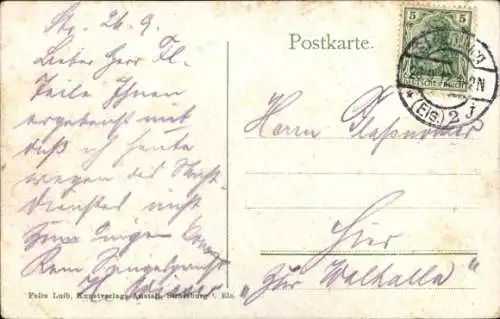 Str. 26. 9.
Lieber Herr Fl.
Teile Ihnen
ergebenst mit
daß ich heute
wegen des Nacht-
dienstes nicht
zum singen
Kein
H.
Felix Luib, Kunstverlags-Anstalt, Strassburg i. Els.
Postkarte.
5 5
DEUTSCHES REICH
(ELS.) 2 J
Herrn
Hier
"Zur Walhalla"